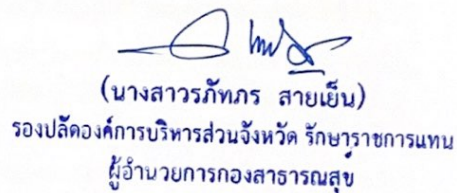 (นางสาวรภัทภร สายเย็น)
รองปลัดองค์การบริหารส่วนจังหวัด รักษาราชการแทน
ผู้อำนวยการกองสาธารณสุข